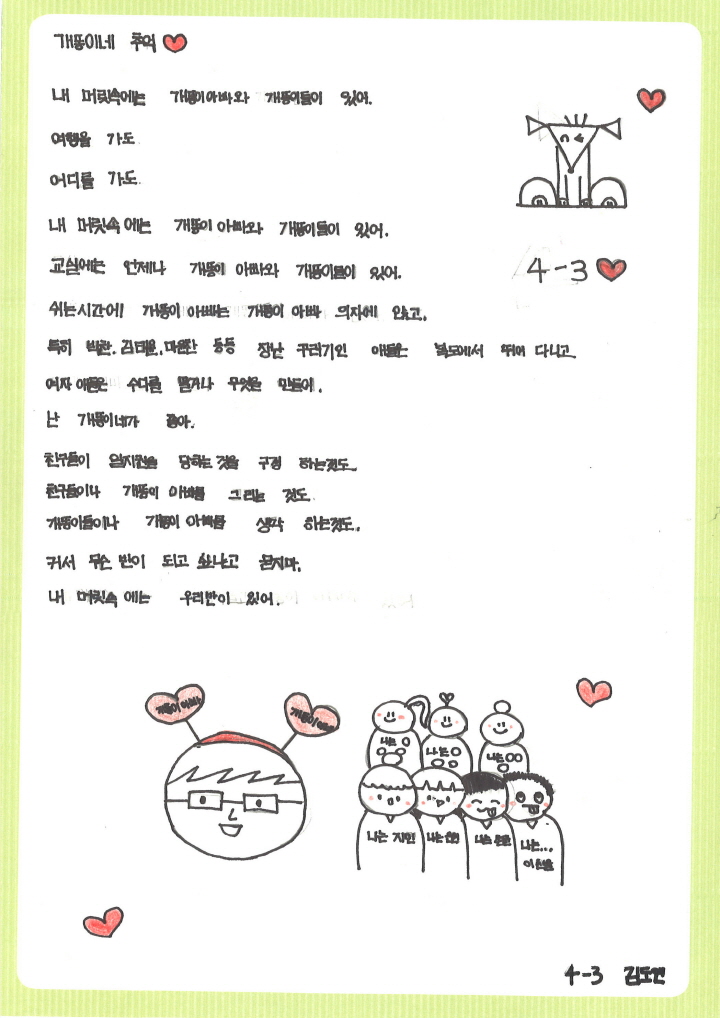 개똥이네 추억
내 머릿속에는 개똥이아빠와 개똥이들이 있어.
여행을 가도
어디를 가도
내 머릿속에는 개똥이 아빠와 개똥이들이 있어.
4-3
교실에는 언제나 개똥이 아빠와 개똥이들이 있어.
쉬는시간에! 개똥이 아빠는 개똥이 아빠 의자에 앉고,
특히 등등 장난 꾸러기인 애들은 복도에서 뛰어 다니고
여자 애들은 수다를 떨거나 무엇을 만들어.
난 개똥이네가 좋아.
친구들이 당하는 것을 구경 하는것도
친구들이나 개똥이 아빠를 그리는 것도
개똥이들이나 개똥이 아빠를 생각 하는것도.
커서 무슨 반이 되고 싶냐고 묻지마.
내 머릿속 에는 우리반이 있어.
개똥이 아빠
개똥이
나는 O
나는 O
나는 OO
나는 지민
나는
나는
나는...
4-3 김도연